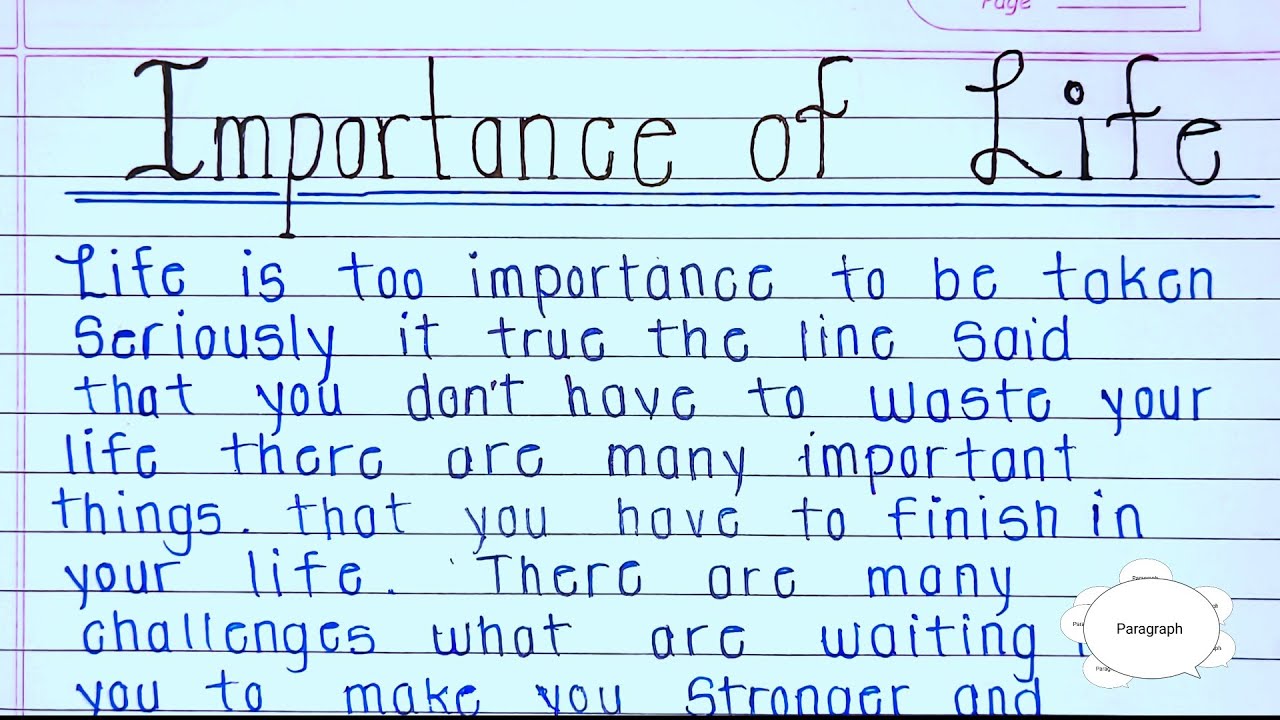 Page
Importance of Life
Life is too importance to be taken
Seriously it true the line said
that you don't have to waste your
life there are many important
things. that you have to finish in
your life. There are many
challenges what are waiting
you to make you Stronger and
Paragraph